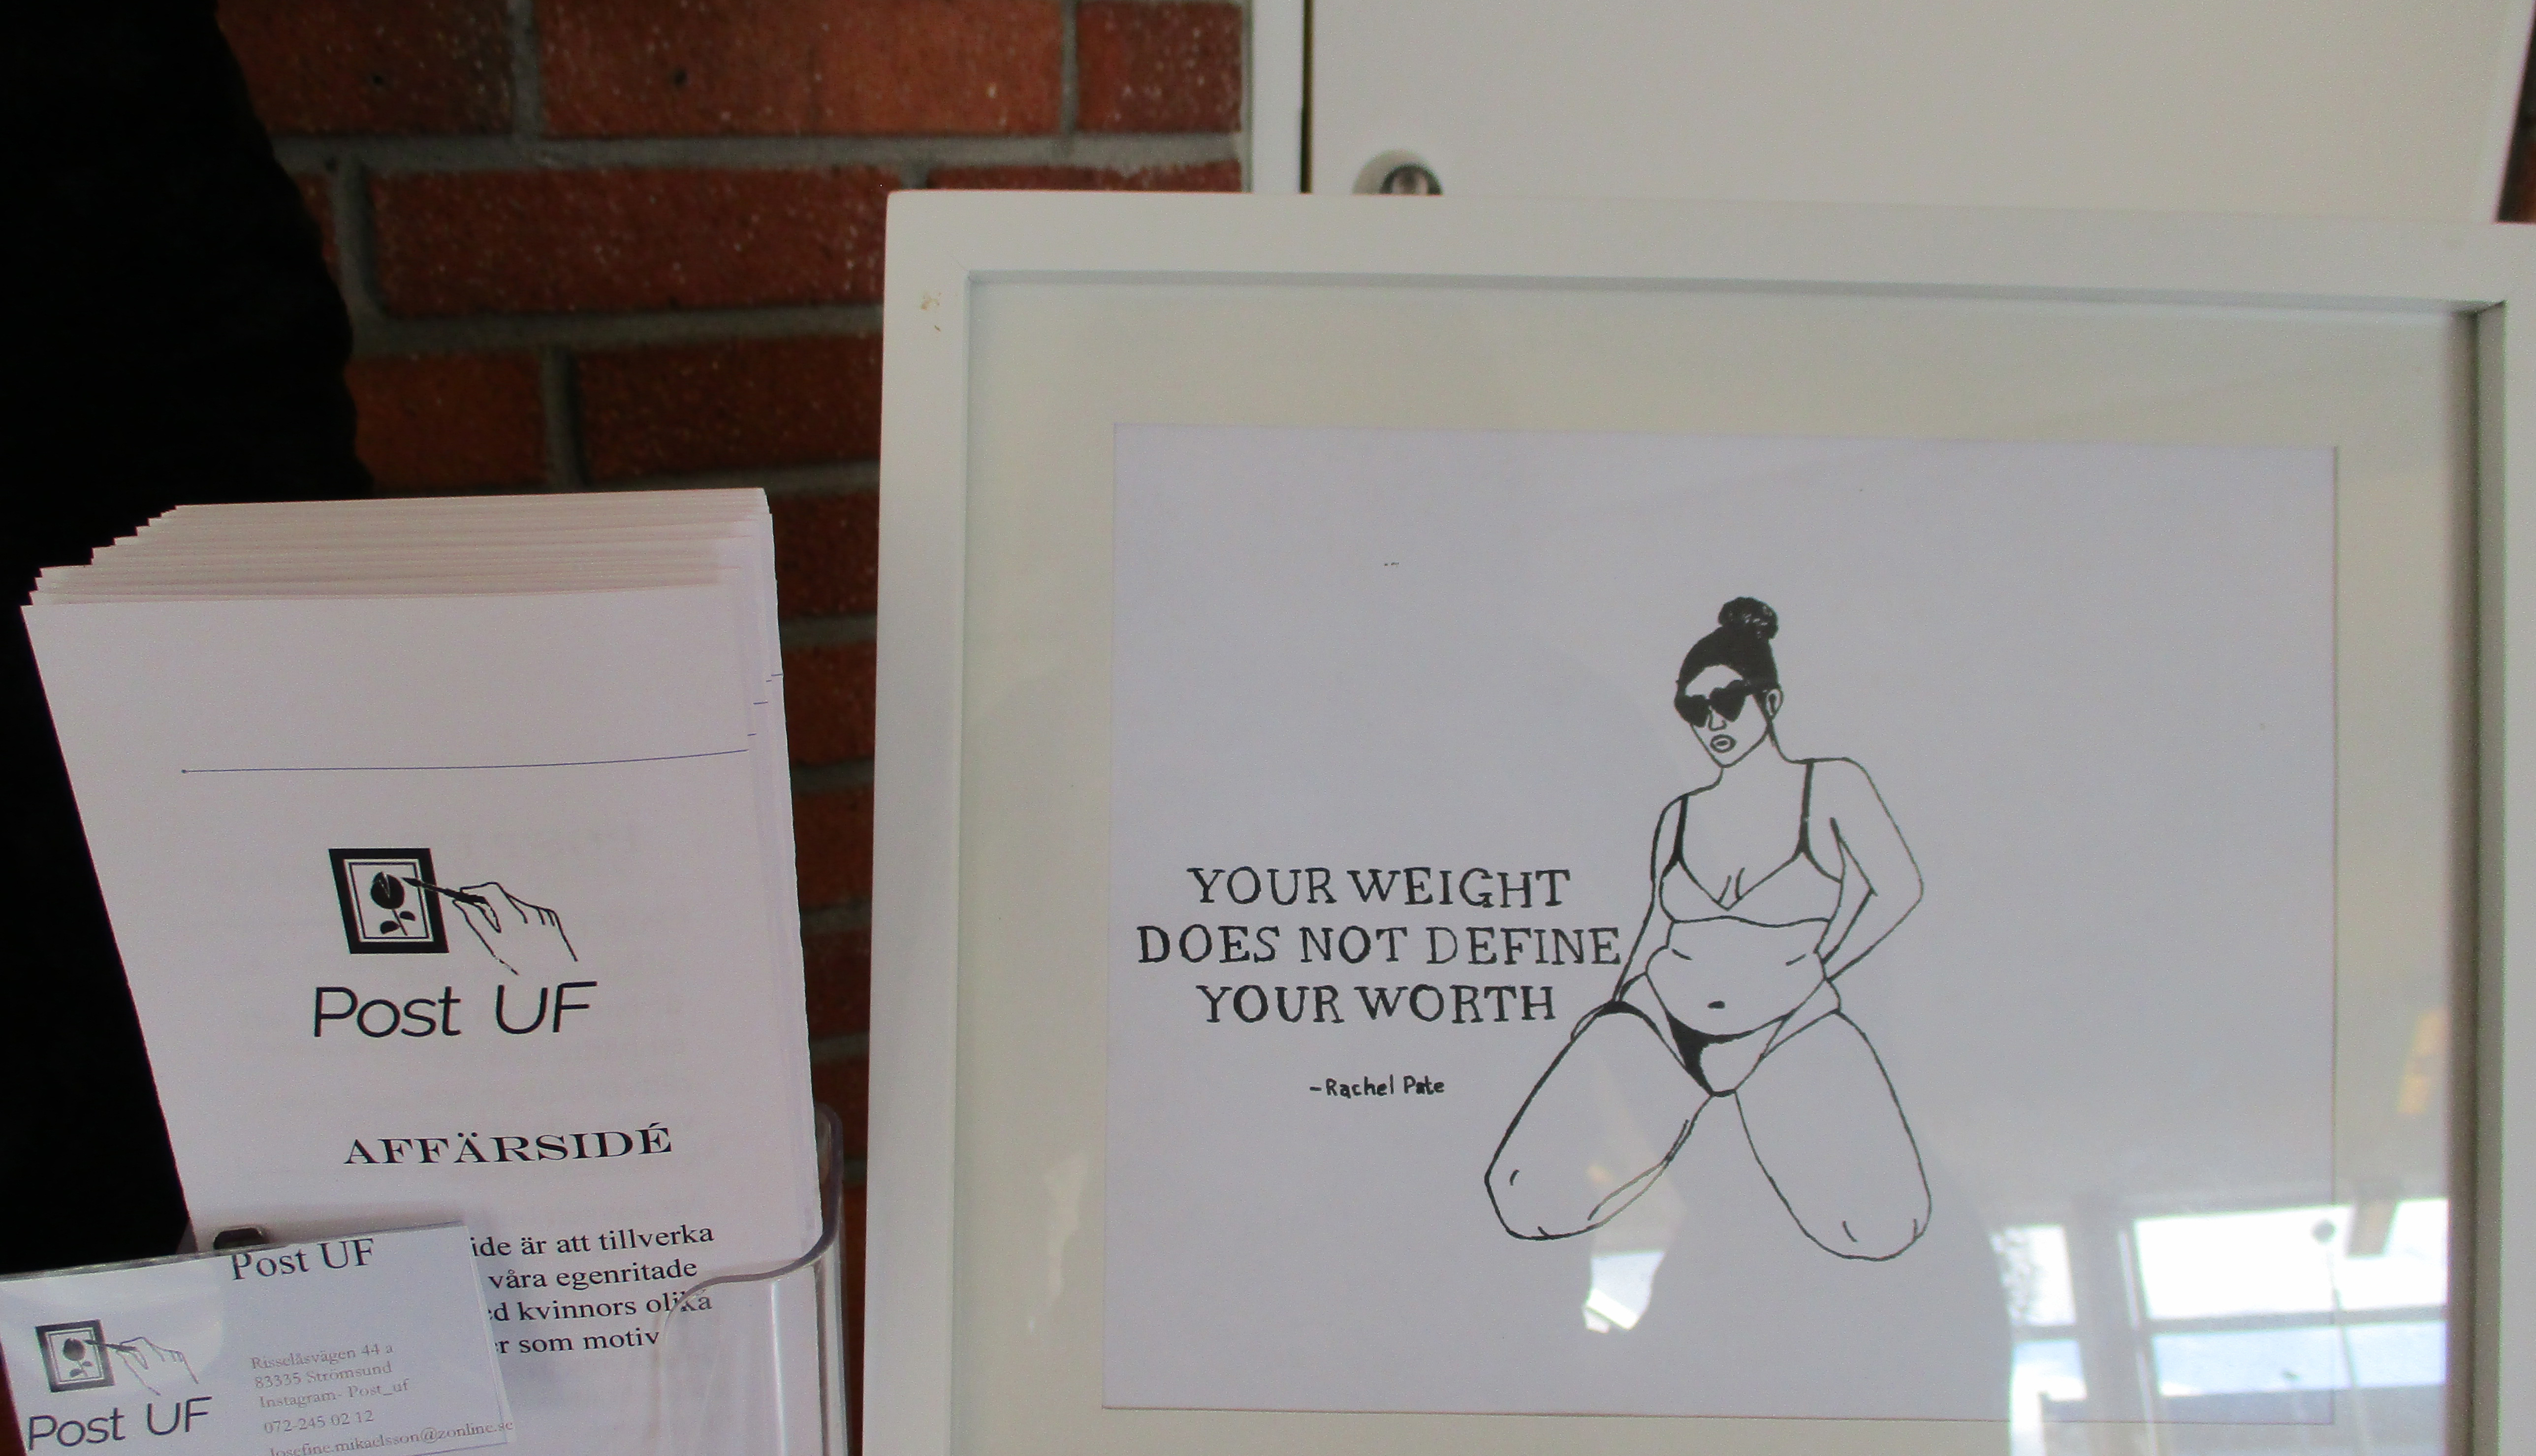 Post UF
AFFÄRSIDÉ
ide är att tillverka
våra egenritade
kvinnors olika
som motiv
Post UF
Post UF
Risselåsvägen 44 a
83335 Strömsund
Instagram- Post_uf
072-245 02 12
Josefine.mikaelsson@zonline.se
YOUR WEIGHT
DOES NOT DEFINE
YOUR WORTH
-Rachel Pate